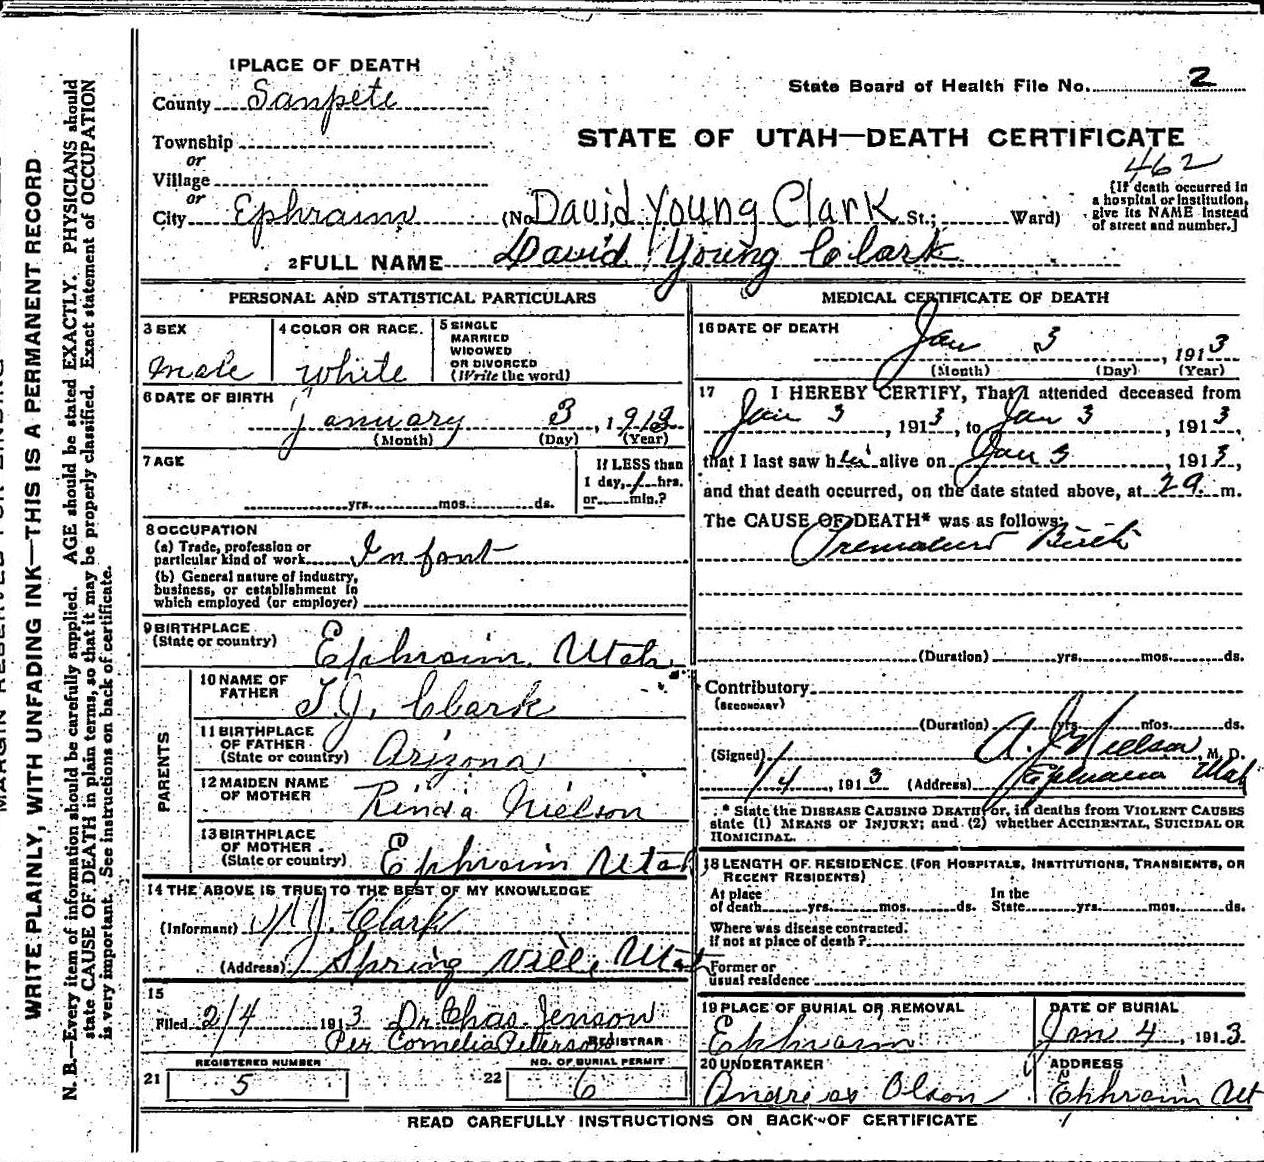 1 PLACE OF DEATH
County Sanpete
State Board of Health File No. 2
Township
or
Village
or
City Ephraim
STATE OF UTAH—DEATH CERTIFICATE
462
(No. David Young Clark St.; Ward)
[If death occurred in
a hospital or institution,
give its NAME instead
of street and number.]
2 FULL NAME David Young Clark
PERSONAL AND STATISTICAL PARTICULARS
3 SEX
male
4 COLOR OR RACE.
white
5 SINGLE
MARRIED
WIDOWED
OR DIVORCED
(Write the word)
6 DATE OF BIRTH
January 3, 1913
(Month) (Day) (Year)
7 AGE
yrs. mos. ds.
If LESS than
1 day, 1 hrs.
or min.?
8 OCCUPATION
(a) Trade, profession or
particular kind of work Infant
(b) General nature of industry,
business, or establishment in
which employed (or employer)
9 BIRTHPLACE
(State or country) Ephraim Utah
PARENTS
10 NAME OF
FATHER T.J. Clark
11 BIRTHPLACE
OF FATHER
(State or country) Arizona
12 MAIDEN NAME
OF MOTHER Rinda Nielson
13 BIRTHPLACE
OF MOTHER
(State or country) Ephraim Utah
14 THE ABOVE IS TRUE TO THE BEST OF MY KNOWLEDGE
(Informant) J. Clark
(Address) Spring Ville, Utah
15
Filed 2/4 1913 Dr. Chas. Jenson
Per Cornelia Peterson REGISTRAR
REGISTERED NUMBER
21 5
NO. OF BURIAL PERMIT
22 6
MEDICAL CERTIFICATE OF DEATH
16 DATE OF DEATH
Jan 3, 1913
(Month) (Day) (Year)
17 I HEREBY CERTIFY, That I attended deceased from
Jan 3, 1913, to Jan 3, 1913
that I last saw him alive on Jan 3, 1913,
and that death occurred, on the date stated above, at m.
The CAUSE OF DEATH* was as follows:
Premature Birth
(Duration) yrs. mos. ds.
Contributory
(SECONDARY)
(Duration) yrs. mos. ds.
(Signed) A. J. Nielson, M. D.
1/4, 1913 (Address) Ephraim Utah
* State the DISEASE CAUSING DEATH, or, in deaths from VIOLENT CAUSES
state (1) MEANS OF INJURY; and (2) whether ACCIDENTAL, SUICIDAL OR
HOMICIDAL.
18 LENGTH OF RESIDENCE (FOR HOSPITALS, INSTITUTIONS, TRANSIENTS, OR
RECENT RESIDENTS)
At place
of death yrs. mos. ds.
In the
State yrs. mos. ds.
Where was disease contracted,
if not at place of death?
Former or
usual residence
19 PLACE OF BURIAL OR REMOVAL
Ephraim
DATE OF BURIAL
Jan 4, 1913
20 UNDERTAKER
Andreas Olson
ADDRESS
Ephraim Ut
READ CAREFULLY INSTRUCTIONS ON BACK OF CERTIFICATE
WRITE PLAINLY, WITH UNFADING INK—THIS IS A PERMANENT RECORD
N. B.—Every item of information should be carefully supplied. AGE should be stated EXACTLY. PHYSICIANS should
state CAUSE OF DEATH in plain terms, so that it may be properly classified. Exact statement of OCCUPATION
is very important. See instructions on back of certificate.